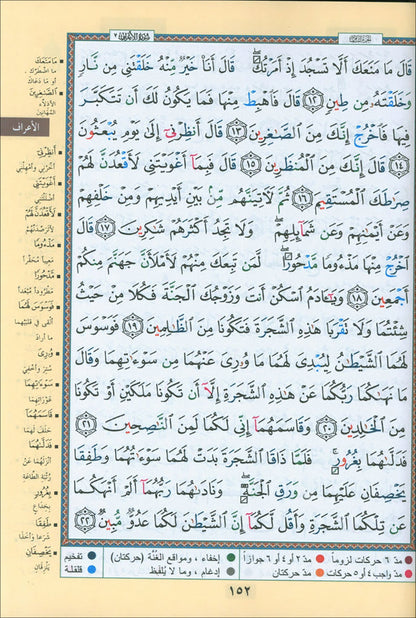 الجزء الثامن
سورة الأعراف ٧
قَالَ مَا مَنَعَكَ أَلَّا تَسْجُدَ إِذْ أَمَرْتُكَ ۖ قَالَ أَنَا خَيْرٌ مِّنْهُ خَلَقْتَنِي مِن نَّارٍ
وَخَلَقْتَهُ مِن طِينٍ ١٢ قَالَ فَاهْبِطْ مِنْهَا فَمَا يَكُونُ لَكَ أَن تَتَكَبَّرَ
فِيهَا فَاخْرُجْ إِنَّكَ مِنَ الصَّٰغِرِينَ ١٣ قَالَ أَنظِرْنِي إِلَىٰ يَوْمِ يُبْعَثُونَ
١٤ قَالَ إِنَّكَ مِنَ الْمُنظَرِينَ ١٥ قَالَ فَبِمَا أَغْوَيْتَنِي لَأَقْعُدَنَّ لَهُمْ
صِرَٰطَكَ الْمُسْتَقِيمَ ١٦ ثُمَّ لَآتِيَنَّهُم مِّن بَيْنِ أَيْدِيهِمْ وَمِنْ خَلْفِهِمْ
وَعَنْ أَيْمَٰنِهِمْ وَعَن شَمَآئِلِهِمْ ۖ وَلَا تَجِدُ أَكْثَرَهُمْ شَٰكِرِينَ ١٧ قَالَ
اخْرُجْ مِنْهَا مَذْءُومًا مَّدْحُورًا ۖ لَّمَن تَبِعَكَ مِنْهُمْ لَأَمْلَأَنَّ جَهَنَّمَ مِنكُمْ
أَجْمَعِينَ ١٨ وَيَٰٓـَٔادَمُ اسْكُنْ أَنتَ وَزَوْجُكَ الْجَنَّةَ فَكُلَا مِنْ حَيْثُ
شِئْتُمَا وَلَا تَقْرَبَا هَٰذِهِ الشَّجَرَةَ فَتَكُونَا مِنَ الظَّٰلِمِينَ ١٩ فَوَسْوَسَ
لَهُمَا الشَّيْطَٰنُ لِيُبْدِيَ لَهُمَا مَا وُۥرِيَ عَنْهُمَا مِن سَوْءَٰتِهِمَا وَقَالَ
مَا نَهَىٰكُمَا رَبُّكُمَا عَنْ هَٰذِهِ الشَّجَرَةِ إِلَّآ أَن تَكُونَا مَلَكَيْنِ أَوْ تَكُونَا
مِنَ الْخَٰلِدِينَ ٢٠ وَقَاسَمَهُمَآ إِنِّي لَكُمَا لَمِنَ النَّٰصِحِينَ ٢١
فَدَلَّىٰهُمَا بِغُرُورٍ ۚ فَلَمَّا ذَاقَا الشَّجَرَةَ بَدَتْ لَهُمَا سَوْءَٰتُهُمَا وَطَفِقَا
يَخْصِفَانِ عَلَيْهِمَا مِن وَرَقِ الْجَنَّةِ ۖ وَنَادَىٰهُمَا رَبُّهُمَآ أَلَمْ أَنْهَكُمَا
عَن تِلْكُمَا الشَّجَرَةِ وَأَقُل لَّكُمَآ إِنَّ الشَّيْطَٰنَ لَكُمَا عَدُوٌّ مُّبِينٌ ٢٢
مَا مَنَعَكَ
ما اضطَرَّك،
أو ما دَعاك
الصَّٰغِرِينَ
الأذلّاء
المُهانين
الأعراف
أَنظِرْنِي
أخّرني وأمهلني
أَغْوَيْتَنِي
أضللتني
لَأَقْعُدَنَّ لَهُمْ
لأترصّدنّهم
مَذْءُومًا
مَعيباً محقّراً
مَدْحُورًا
مَطروداً مُبعداً
فَوَسْوَسَ لَهُمَا
ألقى في قلبيهما
ما أراد
وُۥرِيَ
سُتِرَ وأُخفِيَ
سَوْءَٰتِهِمَا
عَوْراتِهما
قَاسَمَهُمَآ
حَلَفَ لهما
فَدَلَّىٰهُمَا
أنزلهما عن
رُتبة الطّاعة
بِغُرُورٍ
بخداع
طَفِقَا
شَرَعا وأخذا
يَخْصِفَانِ
يُلزقان
مدّ ٦ حركات لزوماً
مدّ ٢ أو ٤ أو ٦ جوازاً
إخفاء، ومواقع الغُنَّة (حركتان)
تفخيم
مدّ واجب ٤ أو ٥ حركات
مدّ حركتان
إدغام، وما لا يُلفَظ
قلقلة
١٥٢